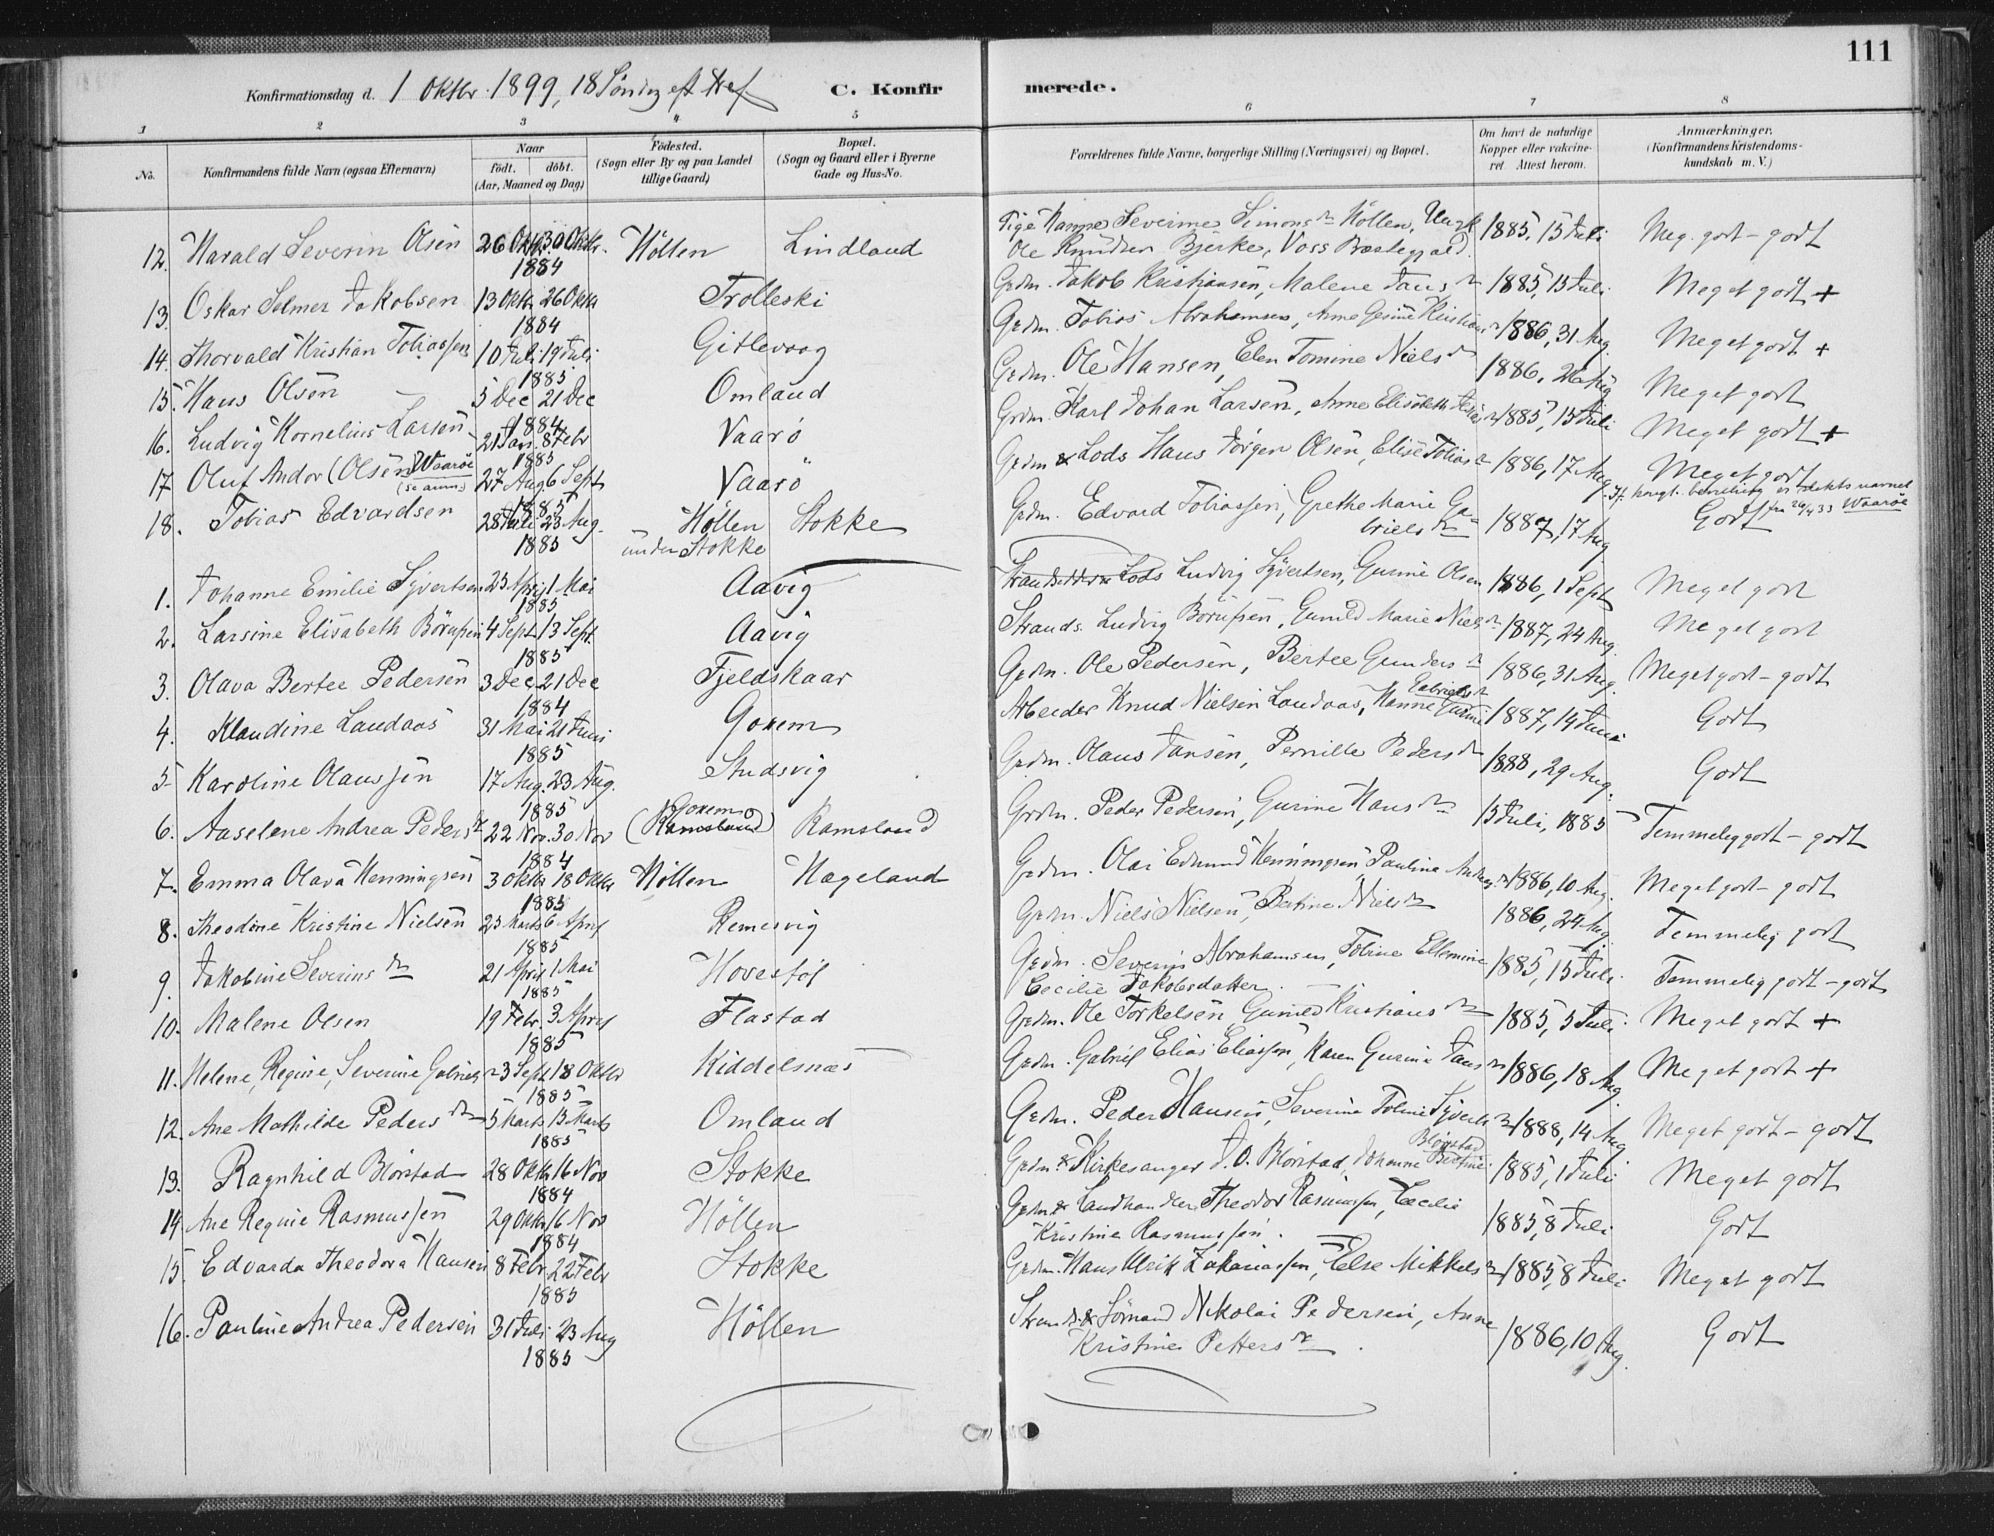 111
Konfirmationsdag d. 1 Oktbr. 1899, 18 Søndag eft Tref C. Konfirmerede.
1 2 3 4 5 6 7 8
No. Konfirmandens fulde Navn (ogsaa Efternavn) Naar født. døbt. (Aar, Maaned og Dag) Fødested. (Sogn eller By og paa Landet tillige Gaard) Bopæl. (Sogn og Gaard eller i Byerne Gade og Hus-No. Forældrenes fulde Navne, borgerlige Stilling (Næringsvei) og Bopæl. Om havt de naturlige Kopper eller vakcineret. Attest herom. Anmærkninger. (Konfirmandens Kristendomskundskab m. V.)
12. Harald Severin Olsen 26 Oktbr. 30 Oktbr. 1884 Höllen Lindland Pige Hanne Severine Simonsdr Höllen, Ungk Ole Knudsen Bjerke, Voss Præstegjæld. 1885, 15 Juli Meg. godt - godt
13. Oskar Selmer Jakobsen 13 Oktbr 26 Oktbr 1884 Trolleski Grdm. Jakob Kristiansen, Malene Jansdr 1885, 15 Juli Meget godt +
14. Thorvald Kristian Tobiassen 10 Juli 19 Juli 1885 Gitlevaag Grdm. Tobias Abrahamsen, Anne Gesine Kristiansdr 1886, 31 Aug. Meget godt +
15. Hans Olsen 5 Dec 21 Dec 1884 Omland Grdm. Ole Hansen, Elen Tomine Nielsdr 1886, 26 Aug Meget godt
16. Ludvig Kornelius Larsen 21 Jan. 8 Febr 1885 Vaarö Grdm. Karl Johan Larsen, Anne Elisabeth 1885, 15 Juli Meget godt +
17 Oluf Andor (Olsen) Waarøe (se anm.) 27 Aug 6 Sept 1885 Vaarö Grdm & Lods Hans Jörgen Olsen, Elise Tobiasdr 1886, 17 Aug. Meget godt
If. kngl. bevilling er slekts navnet fra 26/4 33 Waarøe
18. Tobias Edvardsen 28 Juli 23 Aug. 1885 Höllen under Stokke Stokke Grdm. Edvard Tobiassen, Grethe Marie Gabrielsdr 1887, 17 Aug Godt
1. Johanne Emilie Syvertsen 25 April 1 Mai 1885 Aavig Lods Ludvig Syvertsen, Gurine Olsen 1886, 1 Sept Meget godt
2. Larsine Elisabeth Börufsen 4 Sept. 13 Sept. 1885 Aavig Strands. Ludvig Börufsen, Gunild Marie Nielsdr 1887, 24 Aug. Meget godt
3. Olava Bertee Pedersen 3 Dec 21 Dec 1884 Fjeldskaar Grdm. Ole Pedersen, Bertee Gundersdr 1886, 31 Aug. Meget godt - godt
4. Klaudine Landaas 31 Mai 21 Juni 1885 Goxem Arbeider Knud Nielsen Landaas, Hanne Gurine Gabrielsdr 1887, 14 Juni Godt
5 Karoline Olaussen 17 Aug. 23 Aug. 1885 Studsvig Grdm. Olaus Jansen, Pernille Pedersdr 1888, 29 Aug. Godt
6. Aaselene Andrea Pedersdr 22 Nov. 30 Nov 1884 Goxem (Ramsland) Ramsland Grdm. Peder Pedersen, Gurine Hansdr 15 Juli, 1885 Temmelig godt - godt
7. Emma Olava Henningsen 3 Oktbr 18 Oktbr 1885 Höllen Hageland Grdm. Olai Edmund Henningsen Pauline 1886, 10 Aug. Meget godt - godt
8. Theodine Kristine Nielsen 25 Marts 6 April 1885 Remesvig Grdm. Niels Nielsen, Bertine Nielsdr 1886, 24 Aug. Temmelig godt
9. Jakobine Severinsdr 21 April 1 Mai 1885 Hovestöl Grdm. Severin Abrahamsen, Tobine Ellemine Cecilie Jakobsdatter. 1885, 15 Juli Temmelig godt - godt
10. Malene Olsen 19 Febr. 3 April 1885 Flastad Grdm. Ole Torkelsen Gunild Kristiansdr 1885, 5 Juli Meget godt +
11. Helene Regine, Severine Gabrielsdr 3 Sept 18 Oktbr 1885 Kiddelsnæs Grdm. Gabriel Elias Eliassen, Karen Gurine Jansdr 1886, 18 Aug Meget godt +
12. Ane Mathilde Pedersdr 5 Marts 15 Marts 1885 Omland Grdm. Peder Hansen, Severine Toline Syvertsdr 1888, 14 Aug Meget godt - godt
13. Ragnhild Blörstad 28 Oktbr 16 Nov 1884 Stokke Grdm & Kirkesanger J. O. Blörstad, Johanne Bestine Blörstad 1885, 1 Juli Meget godt
14 Ane Regine Rasmussen 29 Oktbr 16 Nov 1884 Höllen Grdm & Landhandler Theodor Rasmussen, Cecilie Kristine Rasmussen. 1885, 8 Juli Godt
15. Edvarda Theodora Hansen 8 Febr. 22 Febr 1885 Stokke Grdm. Hans Ulrik Zakariassen, Else Mikkelsdr 1885, 8 Juli Meget godt
16. Pauline Andrea Pedersen 31 Juli 23 Aug 1885 Höllen Strands. & Sömand Nikolai Pedersen, Anne Kristine Pettersdr. 1886, 10 Aug. Godt